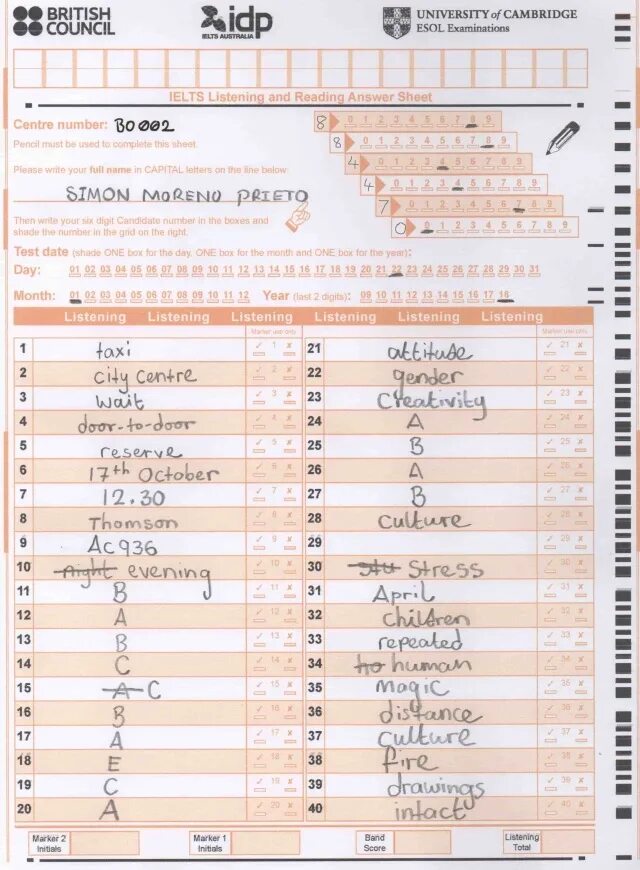 BRITISH COUNCIL
idp
IELTS AUSTRALIA
UNIVERSITY of CAMBRIDGE
ESOL Examinations
IELTS Listening and Reading Answer Sheet
Centre number: BO002
Pencil must be used to complete this sheet.
Please write your full name in CAPITAL letters on the line below:
SIMON MORENO PRIETO
Then write your six digit Candidate number in the boxes and
shade the number in the grid on the right.
8 0 1 2 3 4 5 6 7 8 9
8 0 1 2 3 4 5 6 7 8 9
4 0 1 2 3 4 5 6 7 8 9
4 0 1 2 3 4 5 6 7 8 9
7 0 1 2 3 4 5 6 7 8 9
0 0 1 2 3 4 5 6 7 8 9
Test date (shade ONE box for the day, ONE box for the month and ONE box for the year):
Day: 01 02 03 04 05 06 07 08 09 10 11 12 13 14 15 16 17 18 19 20 21 22 23 24 25 26 27 28 29 30 31
Month: 01 02 03 04 05 06 07 08 09 10 11 12 Year (last 2 digits): 09 10 11 12 13 14 15 16 17 18
Listening Listening Listening Listening Listening Listening
Marker use only Marker use only
1 taxi 1 21 attitude 21
2 City Centre 2 22 gender 22
3 Wait 3 23 Creativity 23
4 door-to-door 4 24 A 24
5 reserve 5 25 B 25
6 17th October 6 26 A 26
7 12.30 7 27 B 27
8 Thomson 8 28 culture 28
9 AC936 9 29 29
10 night evening 10 30 stu Stress 30
11 B 11 31 April 31
12 A 12 32 children 32
13 B 13 33 repeated 33
14 C 14 34 ho human 34
15 A C 15 35 magic 35
16 B 16 36 distance 36
17 A 17 37 culture 37
18 E 18 38 fire 38
19 C 19 39 drawings 39
20 A 20 40 intact 40
Marker 2 Initials Marker 1 Initials Band Score Listening Total